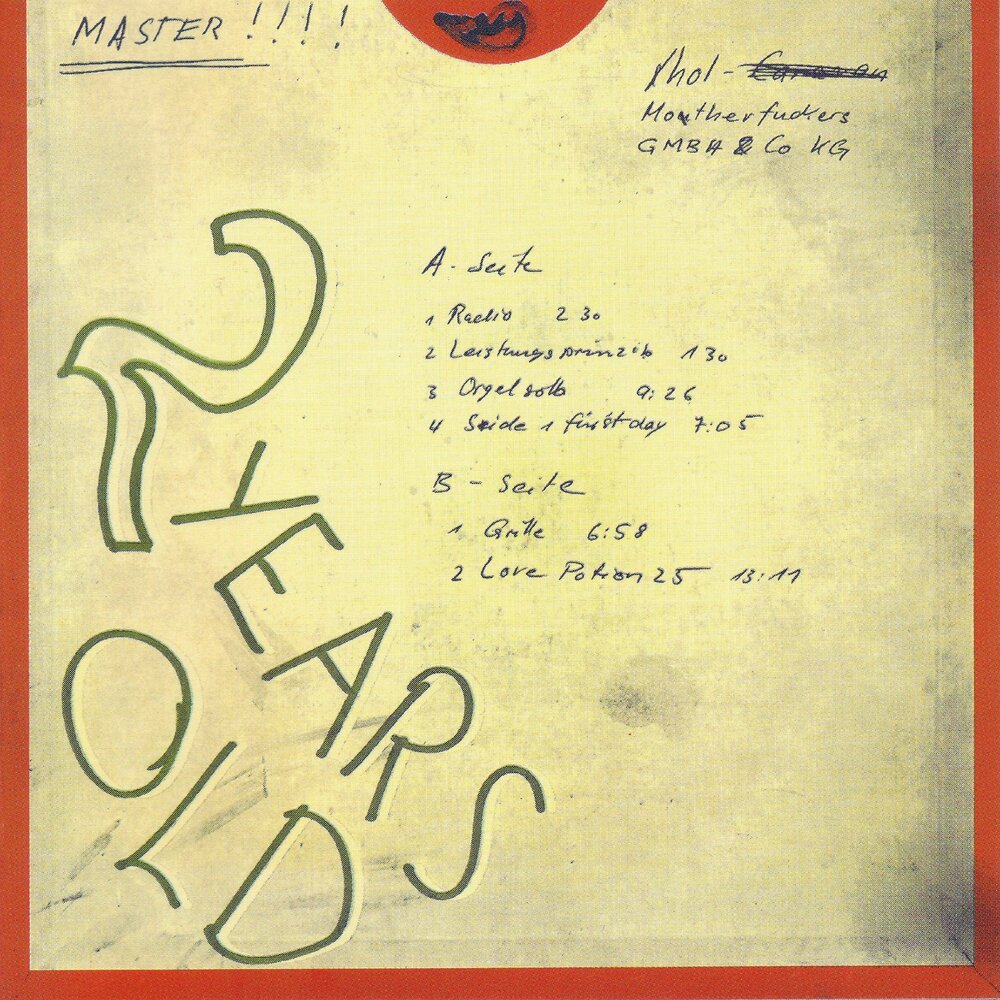 MASTER !!!!
Khol - Caravan
Moutherfuckers
GMBH & Co KG
A - Seite
1 Radio 2 30
2 Leistungsprinzib 1 30
3 Orgelsolo 9:26
4 Seide 1 first day 7:05
B - Seite
1 Grille 6:58
2 Love Potion 25 13:11
2 YEARS
OLD